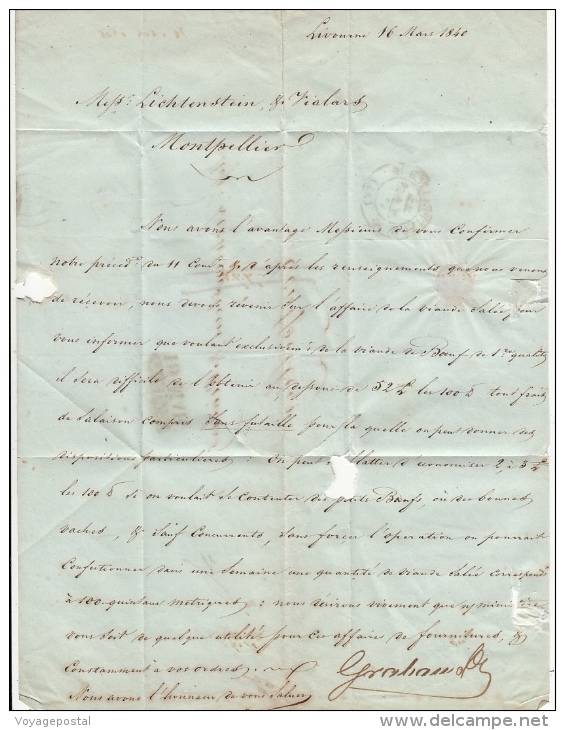 Livourne 16 Mars 1840
Mess.rs Lichtenstein, & Vialars
Montpellier
Nous avons l'avantage Messieurs de vous Confirmer
notre précéd.te du 11 Cour.t & d'après les renseignements que nous venons
de recevoir, nous devons revenir sur l'affaire de la viande Salée, pour
vous informer que voulant exclusivem.t de la viande de Bœuf de 1.re qualité
il sera difficile de l'obtenir au dessous de 52 les 100 tout frais
de Salaison compris Sans futaille pour la quelle on peut donner des
dispositions particulières: On peut flatter d'économiser 2 à 3
les 100 si on voulait se contenter de petits Bœufs, ou de bonnes
vaches, & Sauf Concurrents, sans forcer l'opération on pourrait
Confectionner dans une Semaine une quantité de viande Salée correspond.t
à 100 quintaux métriques: nous désirons vivement que
vous soit de quelque utilité pour ce affaire de fournitures, &
Constamment à vos ordres.
Nous avons l'honneur de vous Saluer
Voyagepostal
delcampe.net